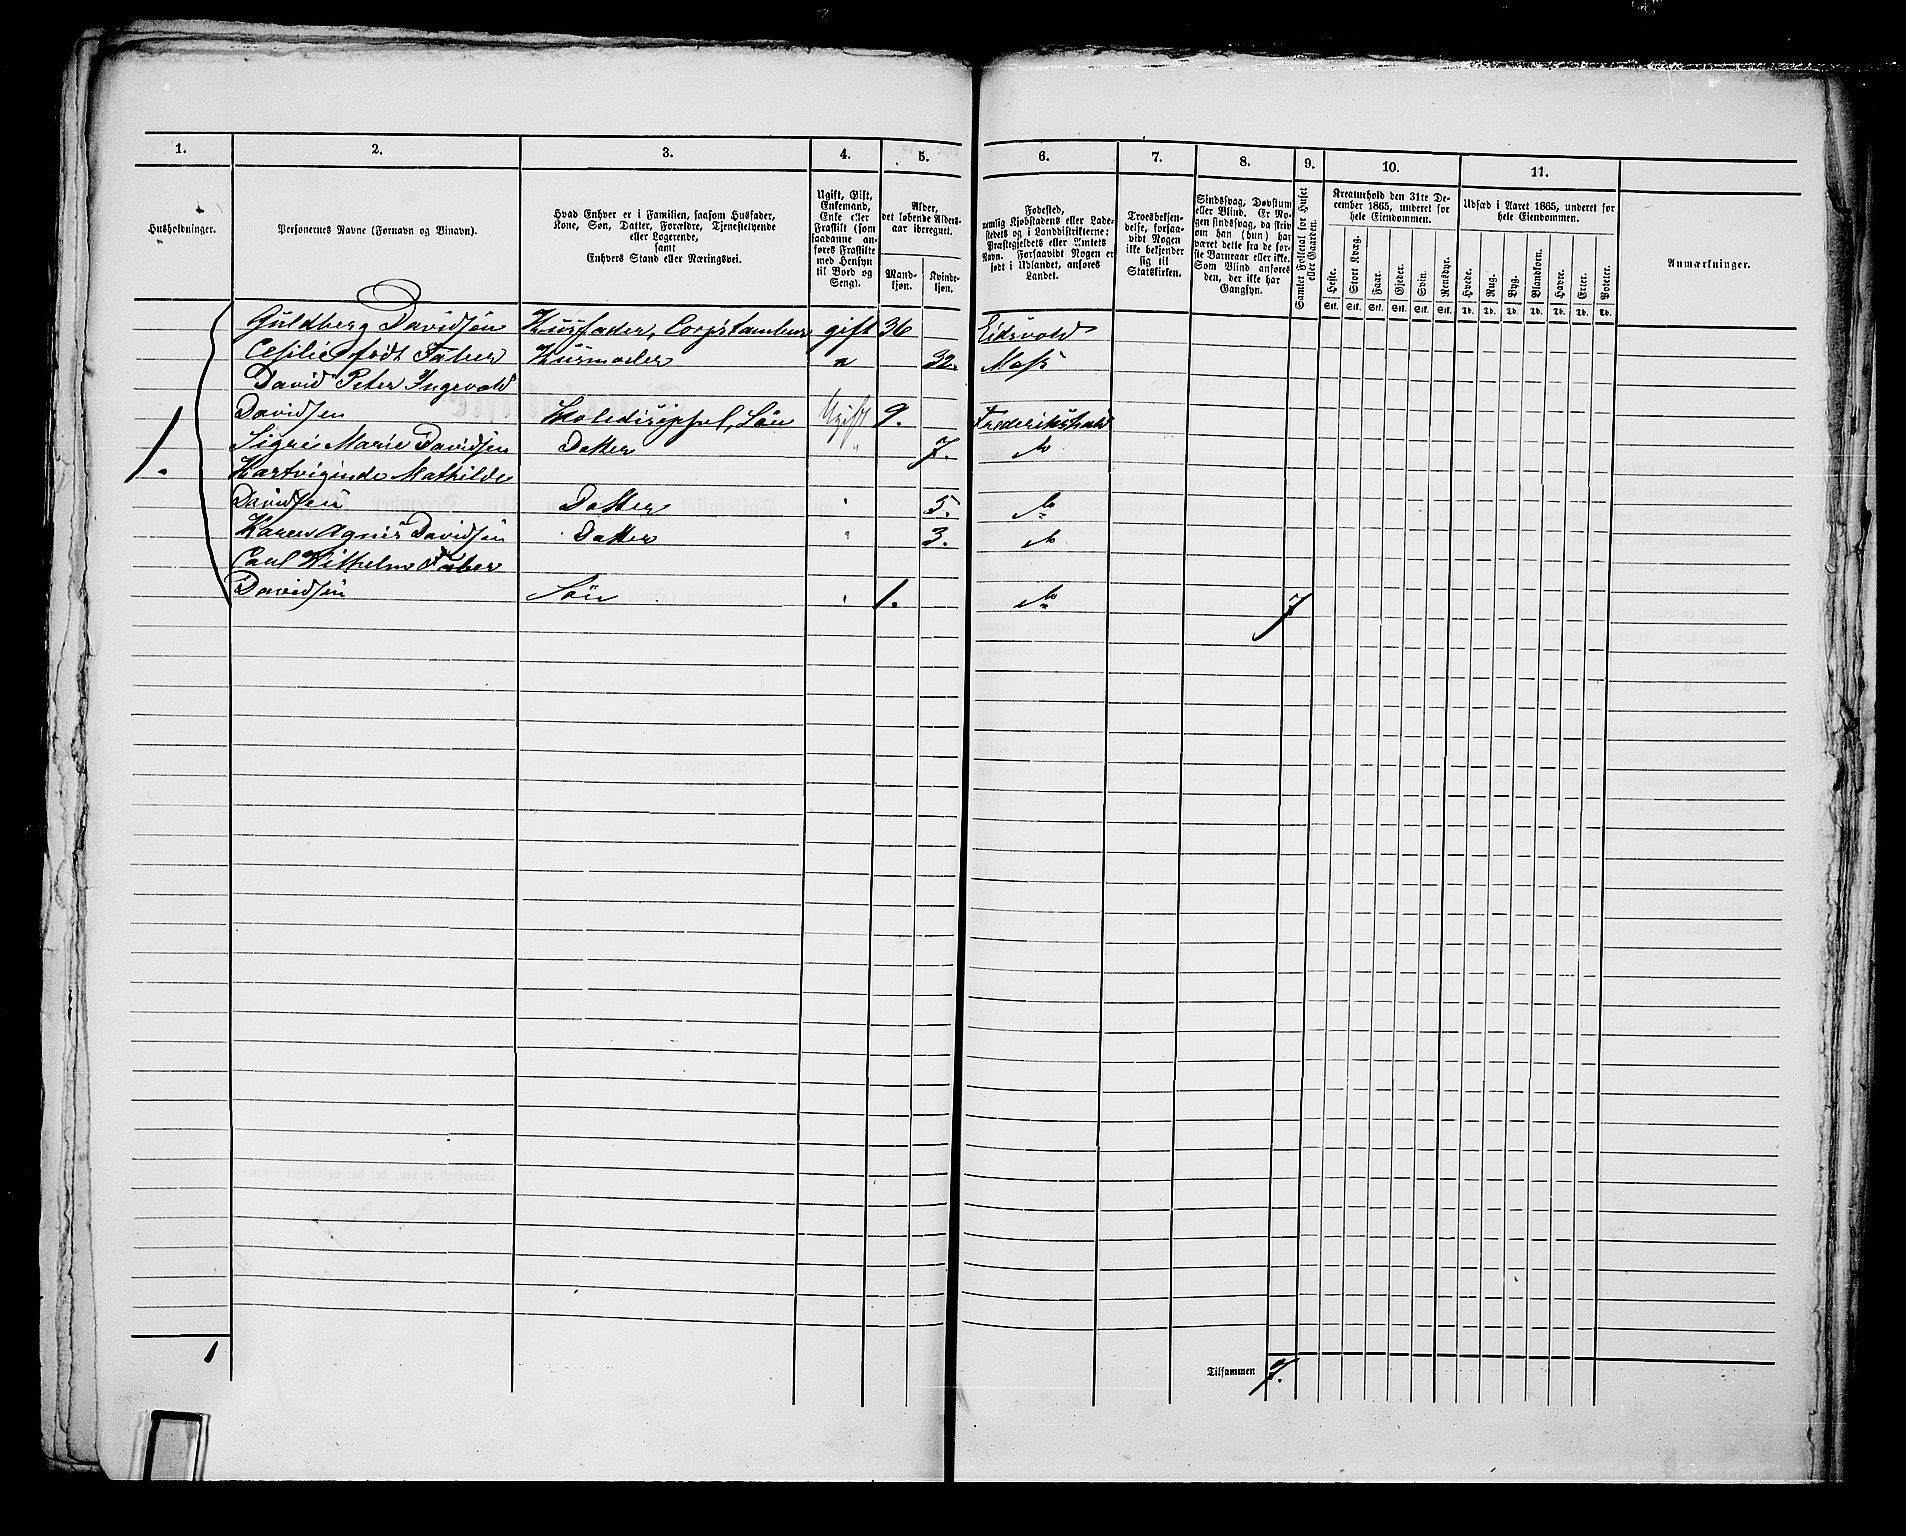 1. 2. 3. 4. 5. 6. 7. 8. 9. 10. 11.
Husholdninger.
Personernes Navne (Fornavn og Binavn).
Hvad Enhver er i Familien, saasom Husfader,
Kone, Søn, Datter, Forældre, Tjenestetyende
eller Logerende,
samt
Enhvers Stand eller Næringsvei.
Ugift, Gift,
Enkemand,
Enke eller
Fraskilt (som
saadanne an-
føres Fraskilte
med Hensyn
til Bord og
Seng).
Alder,
det løbende Alders-
aar iberegnet.
Mand-
kjøn.
Kvinde-
kjøn.
Fødested,
nemlig Kjøbstadens eller Lade-
stedets og i Landdistrikterne:
Præstegjeldets eller Amtets
Navn. Forsaavidt Nogen er
født i Udlandet, anføres
Landet.
Troesbekjen-
delse, forsaa-
vidt Nogen
ikke bekjender
sig til
Statskirken.
Sindssvag, Døvstum
eller Blind. Er No-
gen sindssvag, da skriv
om han (hun) har
været dette fra de for-
ste Barneaar eller ikke.
Som Blind anføres
den, der ikke har
Gangsyn.
Samlet Folketal for Huset
eller Gaarden.
Kreaturhold den 31te De-
cember 1865, underet for
hele Eiendommen.
Heste. Stort Kvæg. Faar. Gjeder. Svin. Rensdyr.
Stk. Stk. Stk. Stk. Stk. Stk.
Udsæd i Aaret 1865, underet for
hele Eiendommen.
Hvede. Rug. Byg. Blandkorn. Havre. Erter. Poteter.
Td. Td. Td. Td. Td. Td. Td.
Anmærkninger.
Guldberg Davidsen Husfader, Corpstambur gift 36 Eidsvold
Cesilie født Faber Husmoder " 32. Moss
David Peter Ingevold
Davidsen Holediscippel, Søn Ugift 9. Frederikshald
1. Signe Marie Davidsen Datter " 7. do
Hartviginde Mathilde
Davidsen Datter " 5. do
Karen Agnis Davidsen Datter " 3. do
Carl Wilhelm Faber
Davidsen Søn " 1. do 7
1
Tilsammen 7.